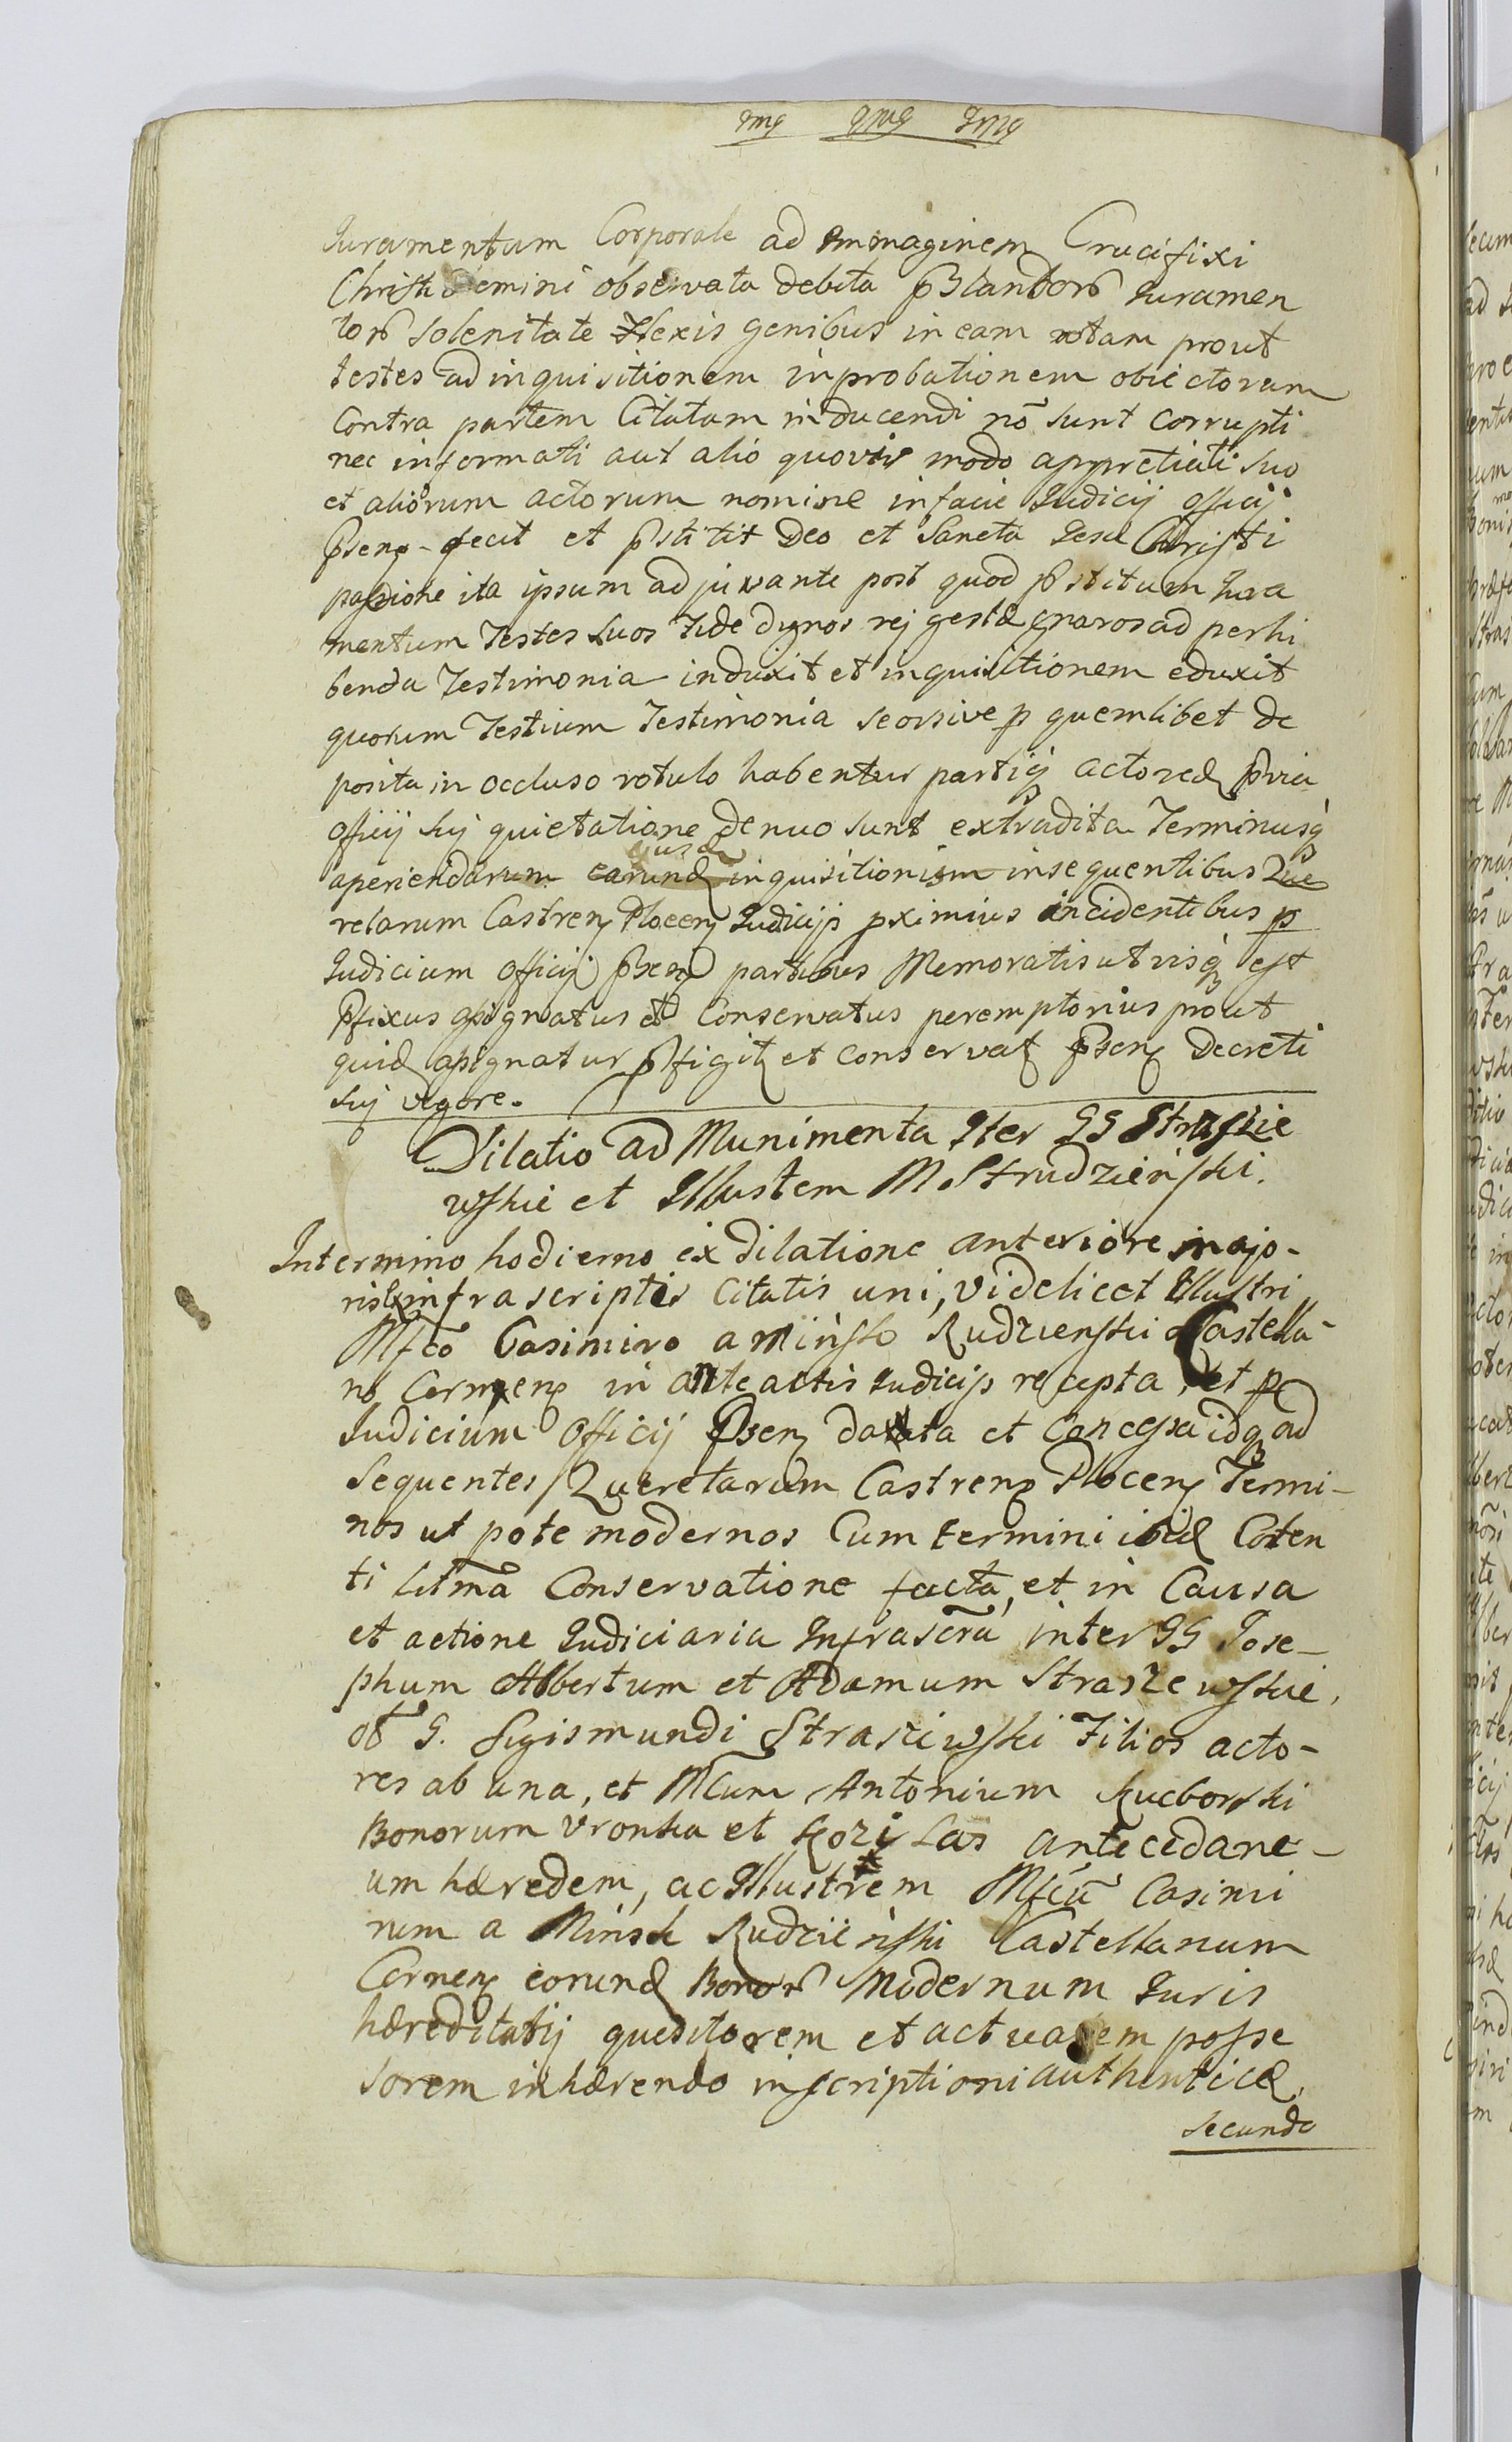 Juramentum Corporale ad Immaginem Crucifixi
Christi Domini observata debita pstandorũ Juramen
torũ solenitate Flexis genibus in eam rotam prout
testes ad inquisitionem in probationem obiectorum
Contra partem Citatam inducendi nõ sunt corrupti
nec informati aut alio quovis modo appretiati suo
et aliorum actorum nomine in facie Judicij officij
psenƷ fecit et pstitit Deo et Sancta Jesu Christi
passione ita ipsum adjuvante post quod pstitum Jura
mentum Testes suos Fide dignos rej gestæ gnaros ad perhi
benda Testimonia induxit et inquisitionem eduxit
quorum Testium Testimonia seorsive p quemlibet de
posita in occluso rotulo habentur partiq actoreæ pvia
officij sui quietatione denuo sunt extradita Terminusq
aperiendarum earund inquisitionism in sequentibus Que
relarum CastrenƷ PlocenƷ Judicijs pximius incidentibus p
Judicium officij psenƷ partibus Memoratis utrisq est
pfixus assignatus et Conservatus peremptorius prout
quid assignatur pfigit et conservat psenƷ Decreti
sui vigore.
Dilatio ad Munimenta Iter GG Straszie
wskie et Illustem M. Strudzieński.
In termino hodierno ex dilatione anteriore majo-
ris infrascriptis Citatis uni, videlicet Illustri
Mfco Casimiro a Mińsko Rudzienski Castella-
no CernƷenƷ in ante actis Judicijs recepta, et p
Judicium Officij psenƷ datata et Concessa idq ad
sequentes Querelarum CastrenƷ PlocenƷ Termi-
nos ut pote modernos Cum termini ibid Coten
ti litma Conservatione facta, et in Causa
et actione Judiciaria Infrascra inter GG Jose-
phum Albertum et Adamum Straszewskie,
ol G. Sigismundi Strasziwski Filios acto-
res ab una, et Mcum Antonium Kuczborski
Bonorum Vronka et Kozi Las antecedane-
um hæredem, ac Illustrem Mfcũ Casimi
rum a Minsk Rudzieński Castellanum
CernenƷ eorund Bonorũ Modernum Juris
hæreditatij quesitorem et actualem posse
sorem inhærendo inscriptioni authenticæ,
secundo